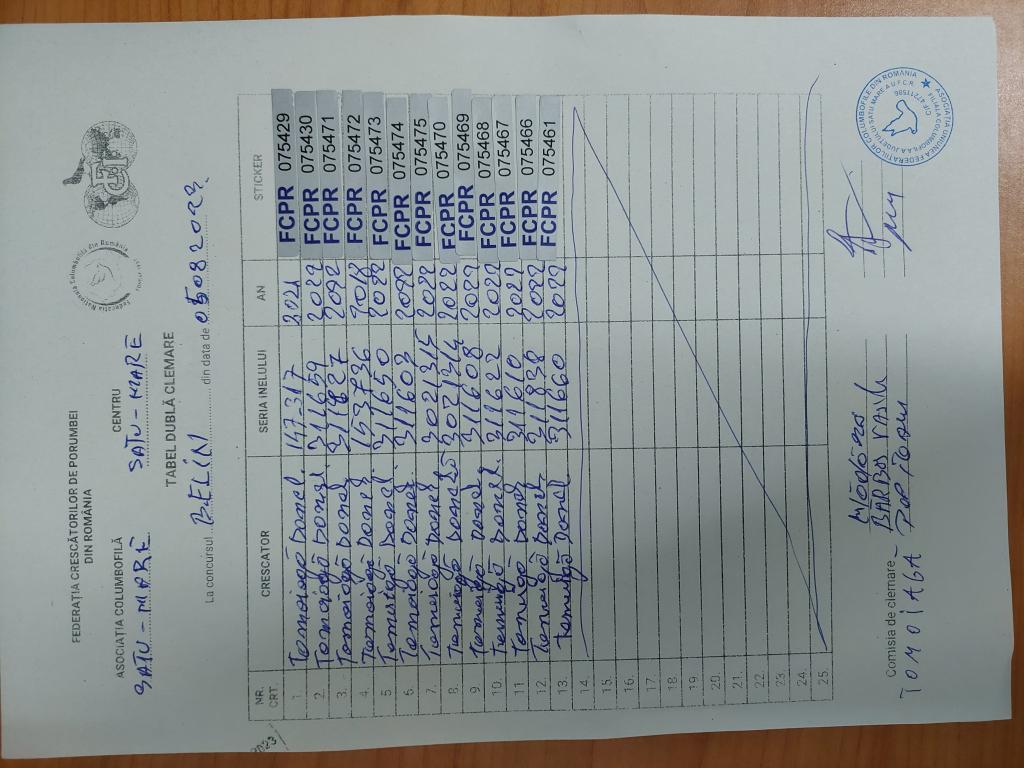 FEDERAȚIA CRESCĂTORILOR DE PORUMBEI
DIN ROMÂNIA
ASOCIAȚIA COLUMBOFILĂ CENTRU
SATU-MARE SATU-MARE
TABEL DUBLĂ CLEMARE
La concursul BELINI din data de 0508 2023
NR. CRT. CRESCATOR SERIA INELULUI AN STICKER
1. Tomoiagă Donel. 147-317 2021 FCPR 075429
2. Tomoiagă Donel. 311659 2022 FCPR 075430
3. Tomoiagă Donel 311627 2022 FCPR 075471
4. Tomoiagă Donel. 153736 2022 FCPR 075472
5 Tomoiagă Donel. 311650 2022 FCPR 075473
6. Tomoiagă Donel. 311603 2022 FCPR 075474
7. Tomoiagă Donel. 302315 2022 FCPR 075475
8. Tomoiagă Donel 302314 2022 FCPR 075470
9. Tomoiagă Donel. 311608 2022 FCPR 075469
10. Tomoiagă Donel. 311622 2022 FCPR 075468
11 Tomoiagă Donel 311610 2022 FCPR 075467
12. Tomoiagă Donel. 311838 2022 FCPR 075466
13. Tomoiagă Donel 311660 2022 FCPR 075461
14.
15.
16.
17.
18.
19.
20.
21.
22.
23.
24.
25.
Comisia de clemare
BARBOS VASILE
TOMOIAGA POP
ASOCIATIA UNIUNEA FEDERATIILOR COLUMBOFILE DIN ROMANIA
FILIALA COLUMBOFILA A JUDETULUI SATU MARE A U.F.C.R.